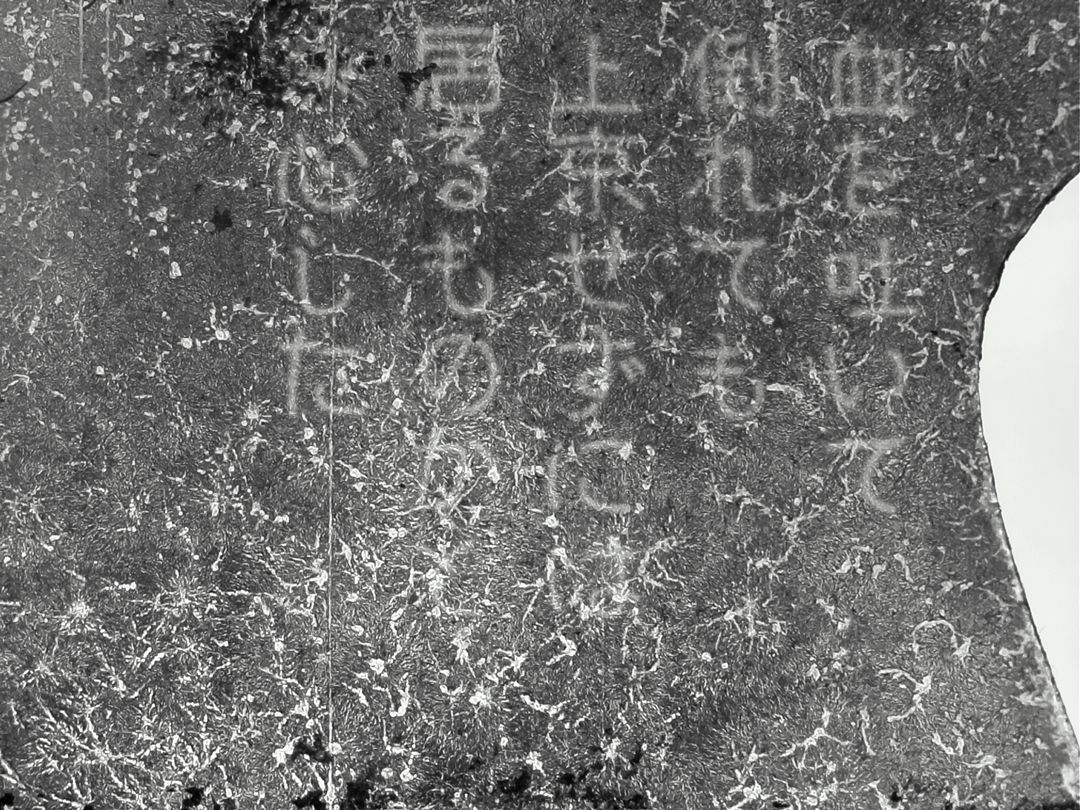 血を吐いて
倒れても
上来せずには
居るものか
心した